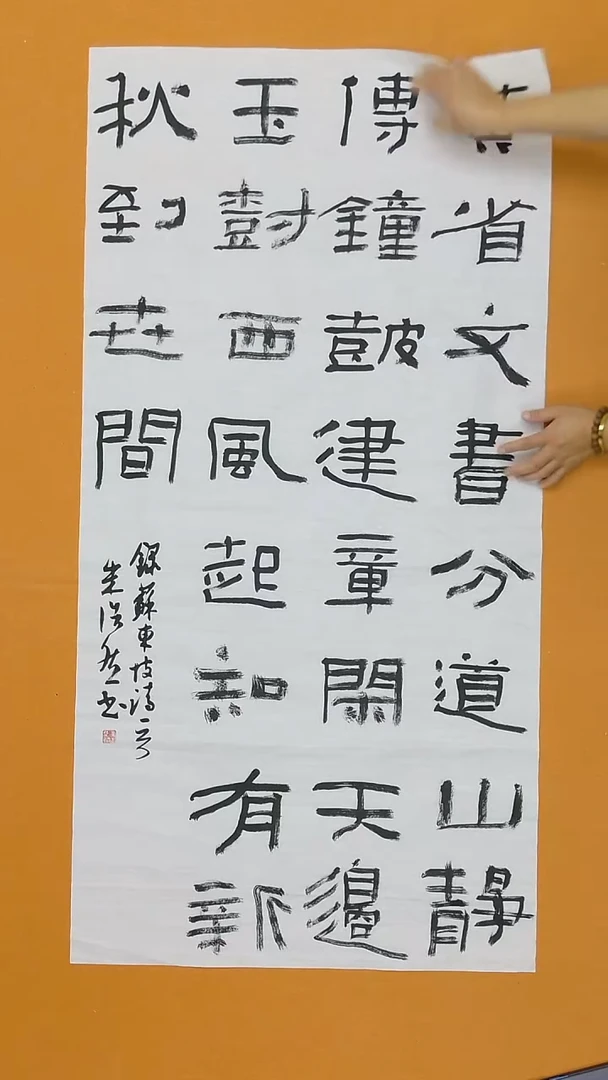 省文書分道山靜
傳鐘皷建章閑天邊
玉樹西風起知有新
秋到世間
錄蘇東坡詩一首
朱浩書